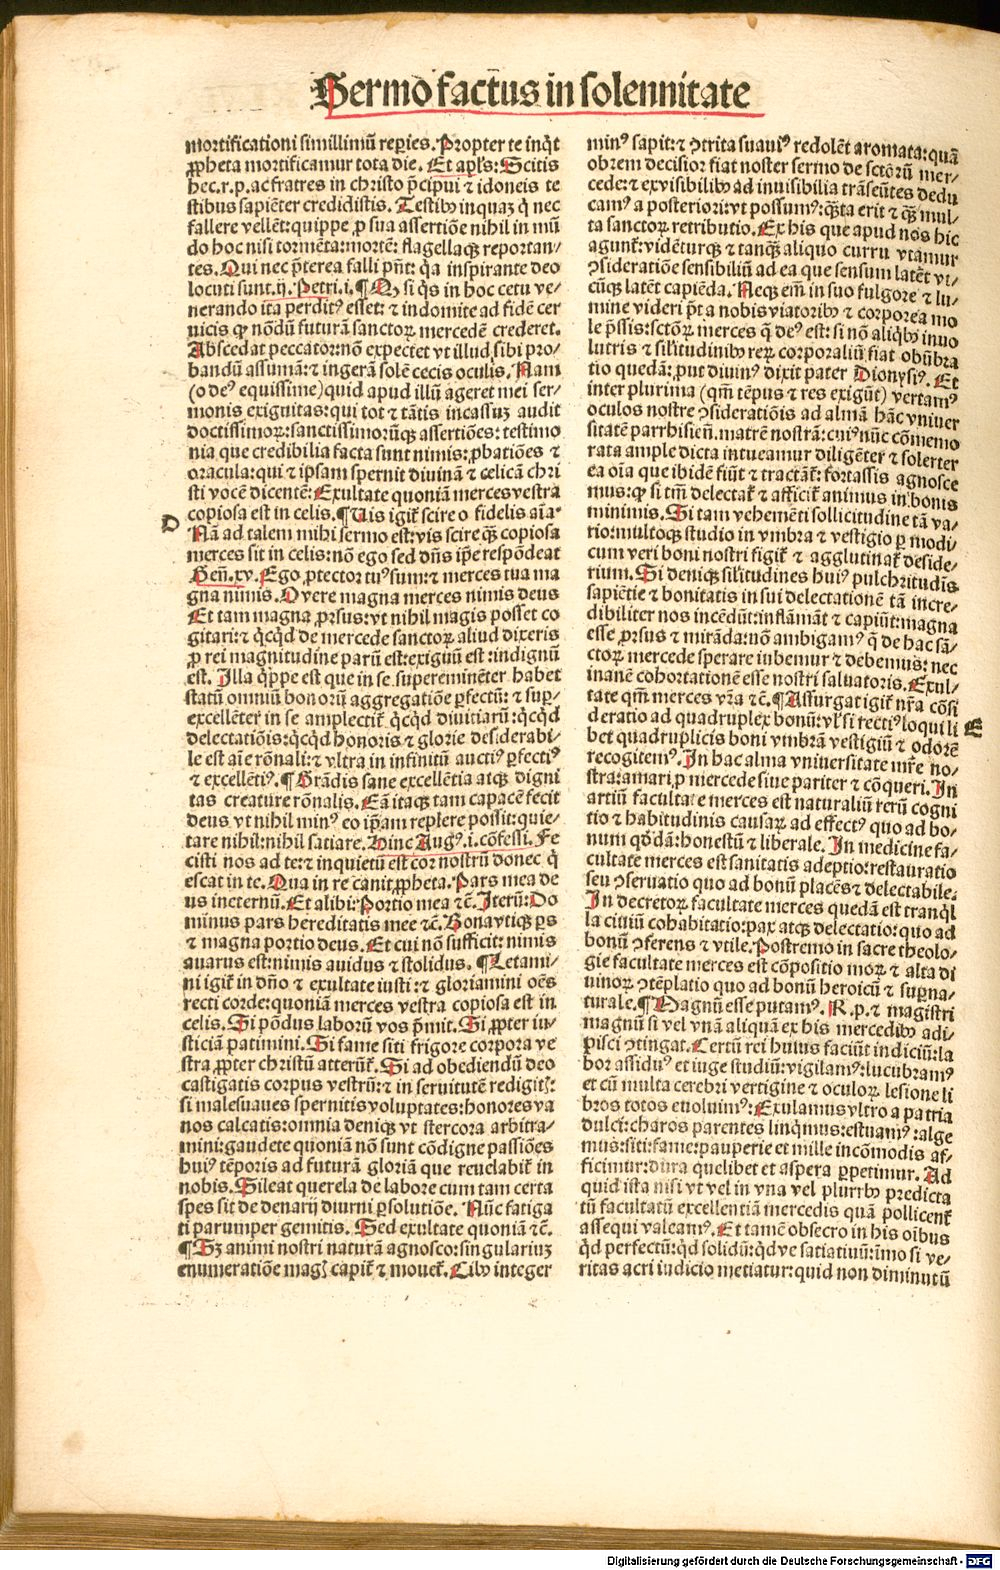 Sermo factus in solennitate
mortificationi simillimū reperies. Propter te inq̇t
ꝓpheta mortificamur tota die. Et apl's: Scitis
hec. r. p. ac fratres in christo p̄cipui ⁊ idoneis te
stibus sapiēter credidistis. Testibꝰ inquaꝫ q̇ nec
fallere vellēt: quippe ꝓ sua assertiōe nihil in mū
do hoc nisi tormēta: mortē: flagellaqꝫ reportan/
tes. Qui nec p̄terea falli pn̄t: q̇a inspirante deo
locuti sunt. ij. Petri. i. ¶ Q si q̇s in hoc cetu ve/
nerando ita perditꝰ esset: ⁊ indomite ad fidē cer
uicis ꝙ nōdū futurā sanctoꝝ mercedē crederet.
Abscedat peccator: nō expectet vt illud sibi pro/
bandū assumā: ⁊ ingerā solē cecis oculis. Nam
(o deꝰ equissime) quid apud illū ageret mei ser/
monis exiguitas: qui tot ⁊ tātis incassuꝫ audit
doctissimoꝝ: sanctissimorūqꝫ assertiōes: testimo
nia que credibilia facta sunt nimis: ꝓbatiōes ⁊
oracula: qui ⁊ ipsam spernit diuinā ⁊ celicā chri
sti vocē dicentē: Exultate quoniā merces vestra
copiosa est in celis. ¶ Vis igiť scire o fidelis aīa.
D
Nā ad talem mihi sermo est: vis scire qꝫ copiosa
merces sit in celis: nō ego sed dn̄s ip̄e respōdeat
Gen̄. xv. Ego ꝓtector tuꝰ sum: ⁊ merces tua ma
gna nimis. O vere magna merces nimis deus
Et tam magna ꝓrsus: vt nihil magis posset co
gitari: ⁊ q̇cq̇d de mercede sanctoꝝ aliud dixeris
ꝓ rei magnitudine parū est: exiguū est: indignū
est. Illa q̇ppe est que in se supereminēter habet
statū omniū bonorū aggregatiōe ꝑfectū: ⁊ suꝑ/
excellēter in se amplectiť q̇cq̇d diuitiarū: q̇cq̇d
delectatiōis: q̇cq̇d honoris ⁊ glorie desiderabi/
le est aīe rōnali: ⁊ vltra in infinitū auctiꝰ ꝑfectiꝰ
⁊ excellētiꝰ. ¶ Grādis sane excellētia atqꝫ digni
tas creature rōnalis. Eā itaqꝫ tam capacē fecit
deus vt nihil minꝰ eo ip̄am replere possit: quie/
tare nihil: nihil satiare. Hinc Augꝰ. i. cōfessi. Fe
cisti nos ad te: ⁊ inquietū est cor nostrū donec q̇
escat in te. Qua in re canit ꝓpheta. Pars mea de
us ineternū. Et alibi: Portio mea ⁊c̄. Iterū: Do
minus pars hereditatis mee ⁊c̄. Bona vtiqꝫ ꝑs
⁊ magna portio deus. Et cui nō sufficit: nimis
auarus est: nimis auidus ⁊ stolidus. ¶ Letami/
ni igiť in dn̄o ⁊ exultate iusti: ⁊ gloriamini oēs
recti corde: quoniā merces vestra copiosa est in
celis. Si pōdus laborū vos p̄mit. Si ꝓpter iu/
sticiā patimini. Si fame siti frigore corpora ve
stra ꝓpter christū atterūť. Si ad obediendū deo
castigatis corpus vestrū: ⁊ in seruitutē redigit{:
si malesuaues spernitis voluptates: honores va
nos calcatis: omnia deniqꝫ vt stercora arbitra/
mini: gaudete quoniā nō sunt cōdigne passiōes
huiꝰ tēporis ad futurā gloriā que reuelabiť in
nobis. Sileat querela de labore cum tam certa
spes sit de denarij diurni ꝑsolutiōe. Nūc fatiga
ti parumper gemitis. Sed exultate quoniā ⁊c̄.
¶ Sꝫ animi nostri naturā agnosco: singulariuꝫ
enumeratiōe mag{ capiť ⁊ moueť. Cibꝰ integer
minꝰ sapit: ⁊ ↄtrita suauiꝰ redolēt aromata: quā
obrem decisior fiat noster sermo de sctōrū mer/
cede: ⁊ ex visibilibꝰ ad inuisibilia trāseūtes dedu
camꝰ a posteriori: vt possumꝰ: q̄sta erit ⁊ qꝫ mul/
ta sanctoꝝ retributio. Ex his que apud nos hic
agunť: vidēturqꝫ ⁊ tanqꝫ aliquo curru vtamur
ↄsideratiōe sensibiliū ad ea que sensum latēt vt/
cūqꝫ latēt capiēda. Neqꝫ em̄ in suo fulgore ⁊ lu/
mine videri p̄t a nobis viatoribꝰ ⁊ corporea mo
le p̄ssis: sctōꝝ merces q̄ deꝰ est: si nō aliq̇bꝰ inuo
lutris ⁊ sil'itudinibꝰ reꝝ corporaliū fiat obūbra
tio quedā: ꝓut diuinꝰ dixit pater Dionysiꝰ. Et
inter plurima (qm̄ tēpus ⁊ res exigūt) vertamꝰ
oculos nostre ↄsideratiōis ad almā hāc vniuer
sitatē parrhisieñ. matrē nostrā: cuiꝰ nūc cōmemo
rata ample dicta intueamur diligēter ⁊ solerter
ea oīa que ibidē fiūt ⁊ tractāť: fortassis agnosce
mus: ꝙ si tm̄ delectať ⁊ afficiť animus in bonis
minimis. Si tam vehemēti sollicitudine tā va/
rio: multoqꝫ studio in vmbra ⁊ vestigio ꝑ modi/
cum veri boni nostri figiť ⁊ agglutinať deside/
rium. Si deniqꝫ sil'itudines huiꝰ pulchritudīs
sapiētie ⁊ bonitatis in sui delectationē tā incre/
dibiliter nos incēdūt: inflāmāt ⁊ capiūt: magna
esse ꝓrsus ⁊ mirāda: nō ambigamꝰ q̄ de hac sā/
ctoꝝ mercede sperare iubemur ⁊ debemus: nec
inanē cohortationē esse nostri saluatoris. Exul/
tate qm̄ merces vr̄a ⁊c̄. ¶ Assurgat igiť nr̄a cōsi
deratio ad quadruplex bonū: vl' si rectiꝰ loqui li
E
bet quadruplicis boni vmbrā vestigiū ⁊ odorē
recogitemꝰ. In hac alma vniuersitate mr̄e no/
stra: amari ꝓ mercede siue pariter ⁊ cōqueri. In
artiū facultate merces est naturaliū rerū cogni
tio ⁊ habitudinis causaꝝ ad effectꝰ quo ad bo/
num qōdā: honestū ⁊ liberale. In medicine fa/
cultate merces est sanitatis adeptio: restauratio
seu ↄseruatio quo ad bonū placēs ⁊ delectabile.
In decretoꝝ facultate merces quedā est tranq̇l
la ciuiū cohabitatio: pax atqꝫ delectatio: quo ad
bonū ↄferens ⁊ vtile. Postremo in sacre theolo/
gie facultate merces est cōpositio moꝝ ⁊ alta di
uinoꝝ ↄtēplatio quo ad bonū heroicū ⁊ suꝑna/
turale. ¶ Magnū esse putamꝰ. R. p. ⁊ magistri
magnū si vel vnā aliquā ex his mercedibꝰ adi/
pisci ↄtingat. Certū rei huius faciūt indiciū: la
bor assiduꝰ et iuge studiū: vigilamꝰ: lucubramꝰ
et cū multa cerebri vertigine ⁊ oculoꝝ lesione li
bros totos euoluimꝰ: Exulamus vltro a patria
dulci: charos parentes linq̇mus: estuamꝰ: alge
mus: siti: fame: pauperie et mille incōmodis af/
ficimur: dura quelibet et aspera ꝑpetimur. Ad
quid ista nisi vt vel in vna vel pluribꝰ predicta
tū facultatū excellentiā mercedis quā pollicenť
assequi valeamꝰ. Et tamē obsecro in his oībus
q̇d perfectū: q̇d solidū: q̇d ve satiatiuū: īmo si ve/
ritas acri iudicio metiatur: quid non diminutū
Digitalisierung gefördert durch die Deutsche Forschungsgemeinschaft - DFG